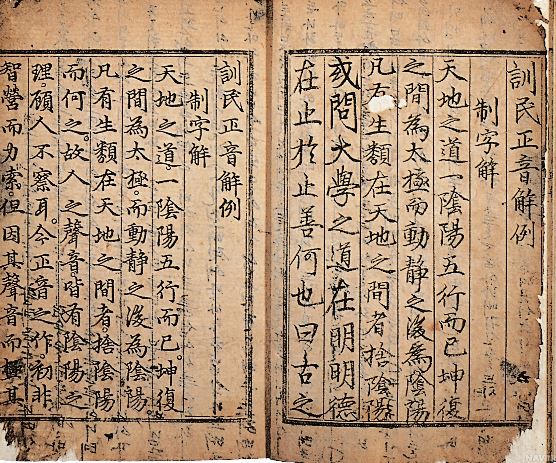 訓民正音解例
制字解
天地之道一陰陽五行而已坤復
之間為太極而動静之後為陰陽
凡有生類在天地之間者捨陰陽
或問大學之道在明明德
在止於止善何也曰古之
訓民正音解例
制字解
天地之道。一陰陽五行而已。坤復
之間為太極。而動静之後為陰陽
凡有生類在天地之間者。捨陰陽
而何之。故人之聲音皆有陰陽之
理。顧人不察耳。今正音之作。初非
智營而力索。但因其聲音而極其